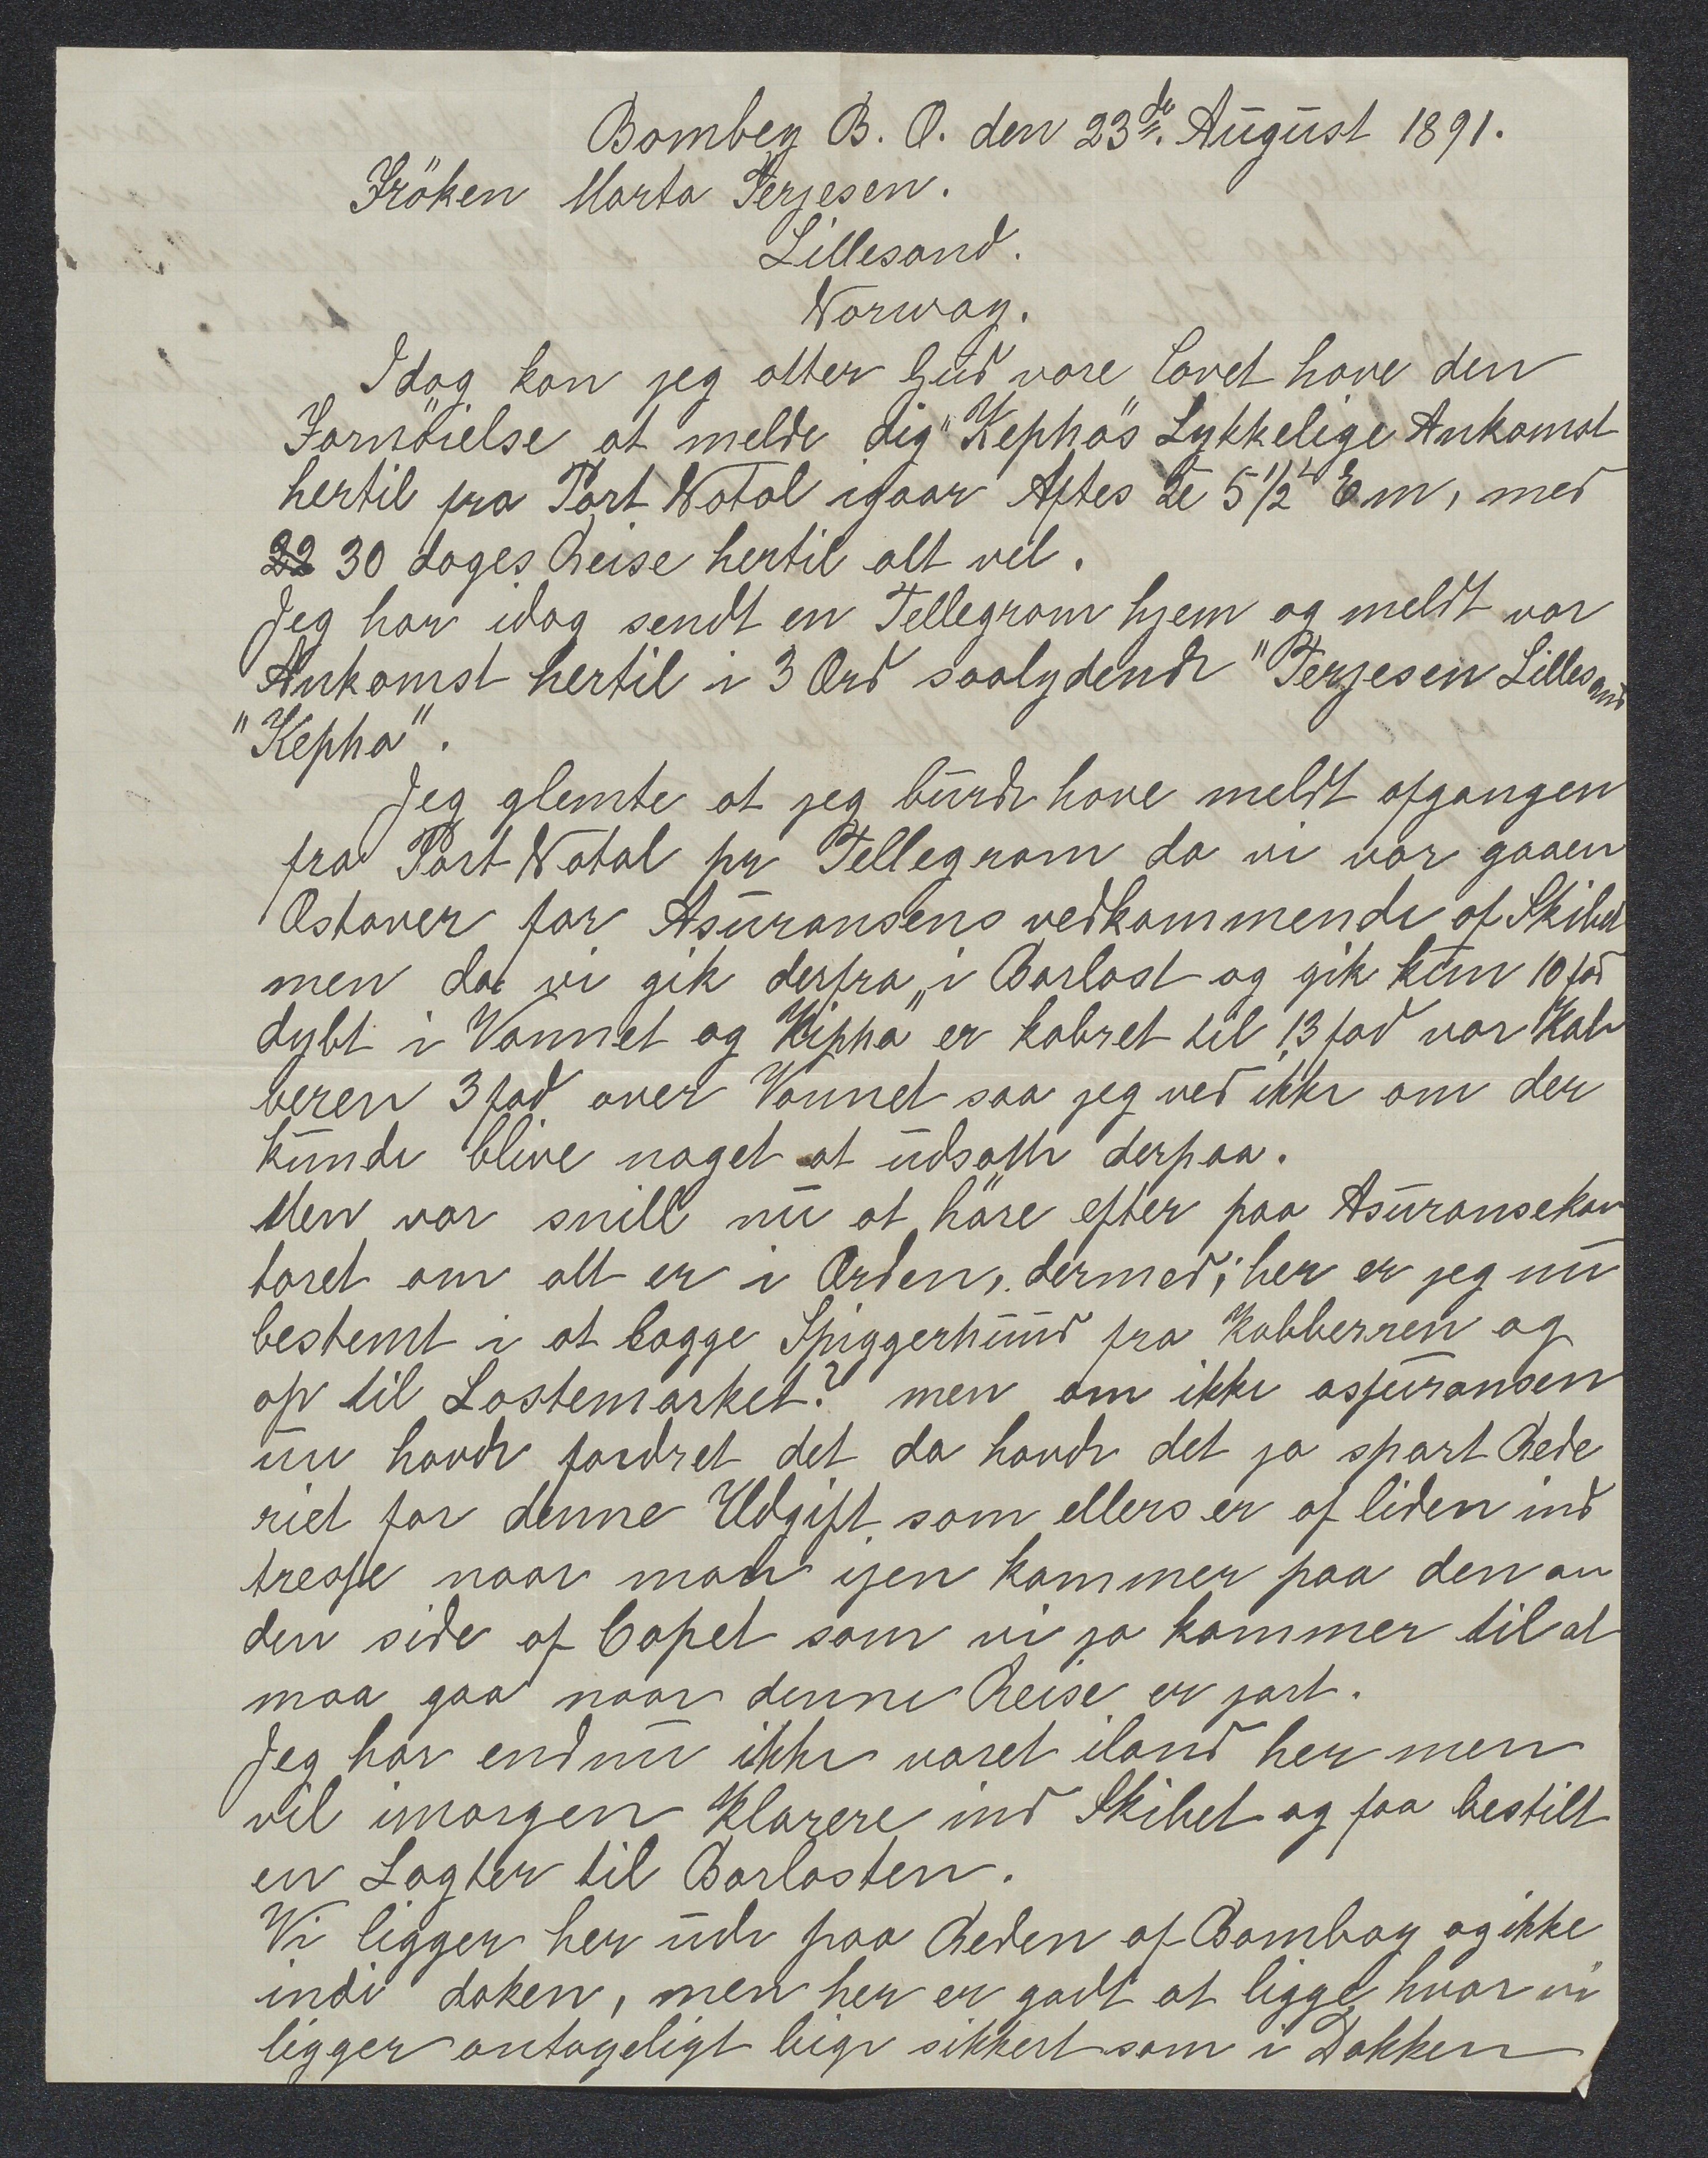 Bombey B. O. den 23de August 1891.
Fröken Marta Terjesen.
Lillesand.
Norway.
Idag kan jeg atter Gud være lovet have den
Fornöielse at melde dig "Kepha's Lykkelige Ankomst
hertil fra Port Natal igaar Aftes Kl 5 1/2 Em, med
22 30 dages Reise hertil alt vel.
Jeg har idag sendt en Tellegram hjem og meldt vor
Ankomst hertil i 3 Ord saalydende "Terjesen Lillesand
"Kepha".
Jeg glemte at jeg burde have meldt afgangen
fra Port Natal pr Tellegram da vi var gaaen
Ostover for Asuransens vedkommende af Skibet
men da vi gik derfra i Barlast og gik kun 10 fod
dybt i Vannet og "Kepha" er kobret til 13 fod var Kob
beren 3 fod over Vannet saa jeg ved ikke om der
kunde blive noget at udsætte derpaa.
Men vær snill nu at höre efter paa Asuransekon
toret om alt er i Orden, dermed; her er jeg nu
bestemt i at lægge Spiggerhuud fra Kobberren og
op til Lastemærket? men om ikke assuransen
nu havde fordret det da havde det jo spart Rede
riet for denne Udgift som ellers er af liden ind
tresse naar man igen kommer paa den an
den side af Capet som vi jo kommer til at
maa gaa naar denne Reise er jort.
Jeg har endnu ikke været iland her men
vil imorgen Klarere ind Skibet og faa bestilt
en Lægter til Barlasten.
Vi ligger her ude paa Reden af Bombay og ikke
indi doken, men her er godt at ligge hvor vi
ligger antageligt lige sikkert som i Dokken